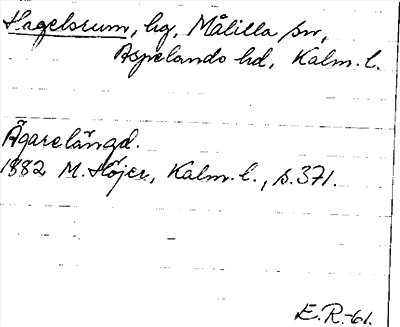 Hagelsrum, hg, Målilla sn,
Aspelands hd, Kalm. l.
Ägarelängd.
1882 M. Höjer, Kalm. l., s. 371.
E.R.-61.